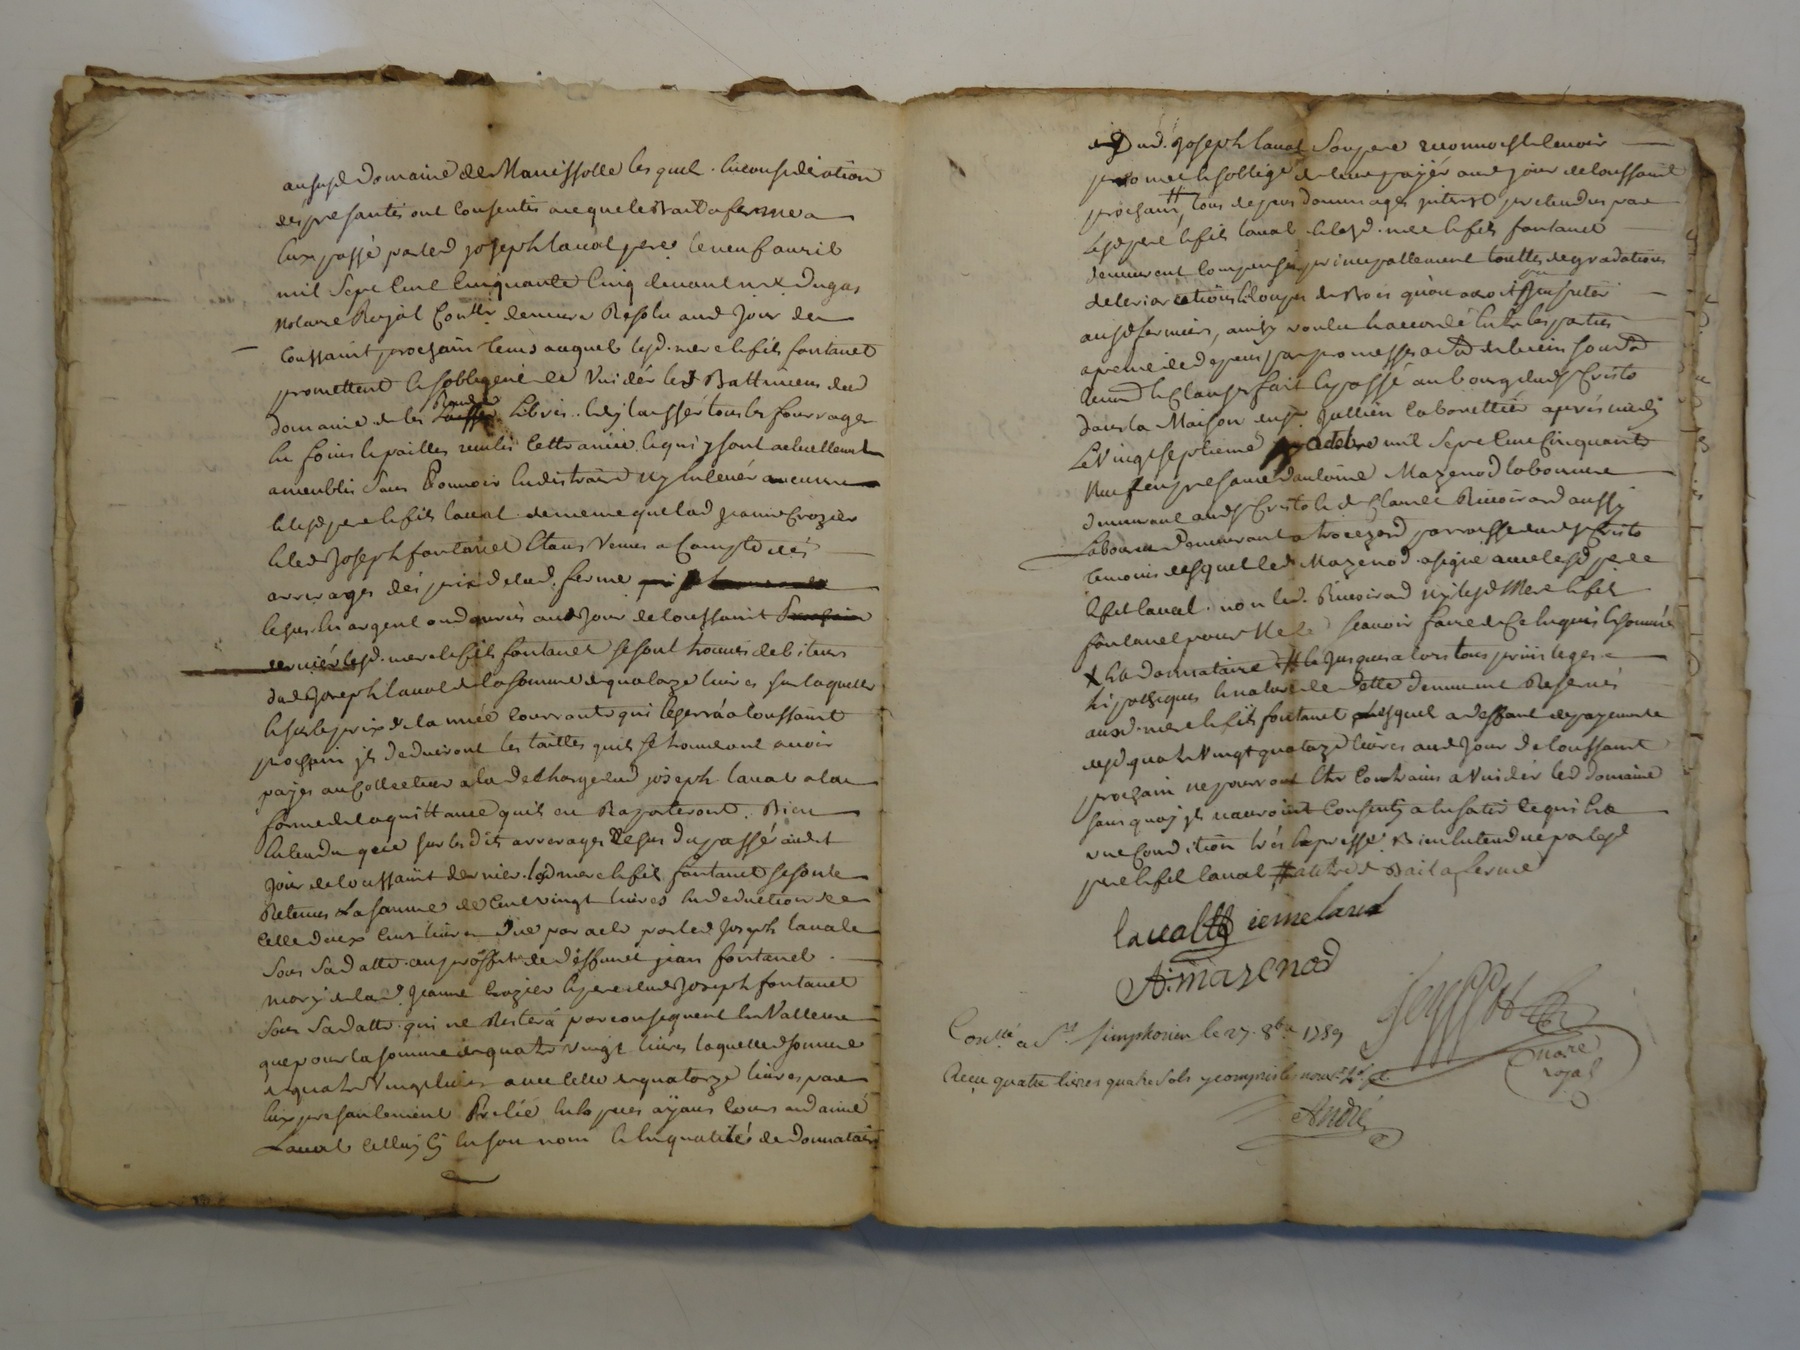 audsd domaine de Manissolle lesquels en consideration
des presantes ont consentis aceque le Bail a ferme a
eux passé par led joseph laval pere le neuf avril
mil sept cent cinquante cinq devant me Dugas
Notaire Royal demeure Resolu aud jour de
toussaint prochain tems auquel lesd. mere et fils fontanet
promettent et sobligent de Vuidér les Battimens dud
domaine de les Rendre Libres et dy laissér tous les fourrages
en foins et pailles cette année et qui y sont actuellement
ameublis sans Pouvoir en distraire ny enlevér aucune
et lesd pere et fils laval de meme que lad jeanne Crozier
et led Joseph fontanet étans Venus a Compte dés
arrerages dés prix de lad. ferme
en argent ou aud Jour de toussaint
dernier lesd. mere et fils fontanet se sont trouvés debiteurs
dud Joseph laval de la somme de quatorze livres sur laquelle
et sur le prix de lannée courrante qui écherra a toussaint
prochain ils deduiront les tailles quils se trouveront avoir
payés au Collecteur a la decharge dud joseph laval a la
forme de la quittance quils en Raporteront. Bien
entendu que sur lesdits arrerages du passé audit
Jour de toussaint dernier lesd mere et fils fontanet se sont
Retenus La somme de Cent vingt livres en deduction de
celle de deux Cent livres due par acte par led Joseph laval
Sous Sa datte au proffit de deffunct jean fontanet
mary de lad. Jeanne Crozier et pere dud Joseph fontanet
Sous Sa datte qui ne Resterá par consequent en Valleur
que pour la somme de quatre vingt livres laquelle somme
de quatre vingt livres avec celle de quatorze livres par
eux presentement ayans cours aud aimé
Laval en son nom et en qualités de donnataire
dud. Joseph laval Son pere reconnoist devoir
promet et sobligé de leur payér aud jour de toussaint
prochain tous depens dommages interest pretendus par
lesd pere et fils laval et lesd. mere et fils fontanet
demeurent compensés principallement touttes degradations
deteriorations et coupes de Bois quon auroit pu imputér
ausd fermiers, ainsy voulu et accordé entre les parties
a peine de depens par promesses
Renonc et Clauses fait et passé au bourg dud St Cristo
dans la Maison de sr Jullien cabarettier aprés midy
Le Vingt septieme octobre mil Sept Cent Cinquante
Neuf en presance dantoine Mazenod laboureur
demeurant aud St Cristo et de Rivoirard aussy
Laboureur demeurant a parroisse dud St Cristo
temoins desquels led Mazenod a signé avec lesd pere
et fils laval non led. Rivoirard ny lesd Mere et fils
fontanet pour ne scavoir faire de ce enquis et sommés
X et donnataire # et jusques alors tous privileges
hipotheques et nature de dette demeurent Reservés
ausd mere et fils fontanet lesquels a deffaut de payement
desd quatre Vingt quatorze livres aud Jour de toussaint
prochain ne pourront etre contrains a Vuidér led domaine
sans quoy ils nauroint Consenty
une Condition trés expresse Bien entendue par lesd
pere et fils laval # a titre de Bail a ferme
laval eme laval
A. mazenod
Conllé a St. simphorien le 27. 8bre 1759
notre
royal
Recu quatre livres quatre sols y compris les
André